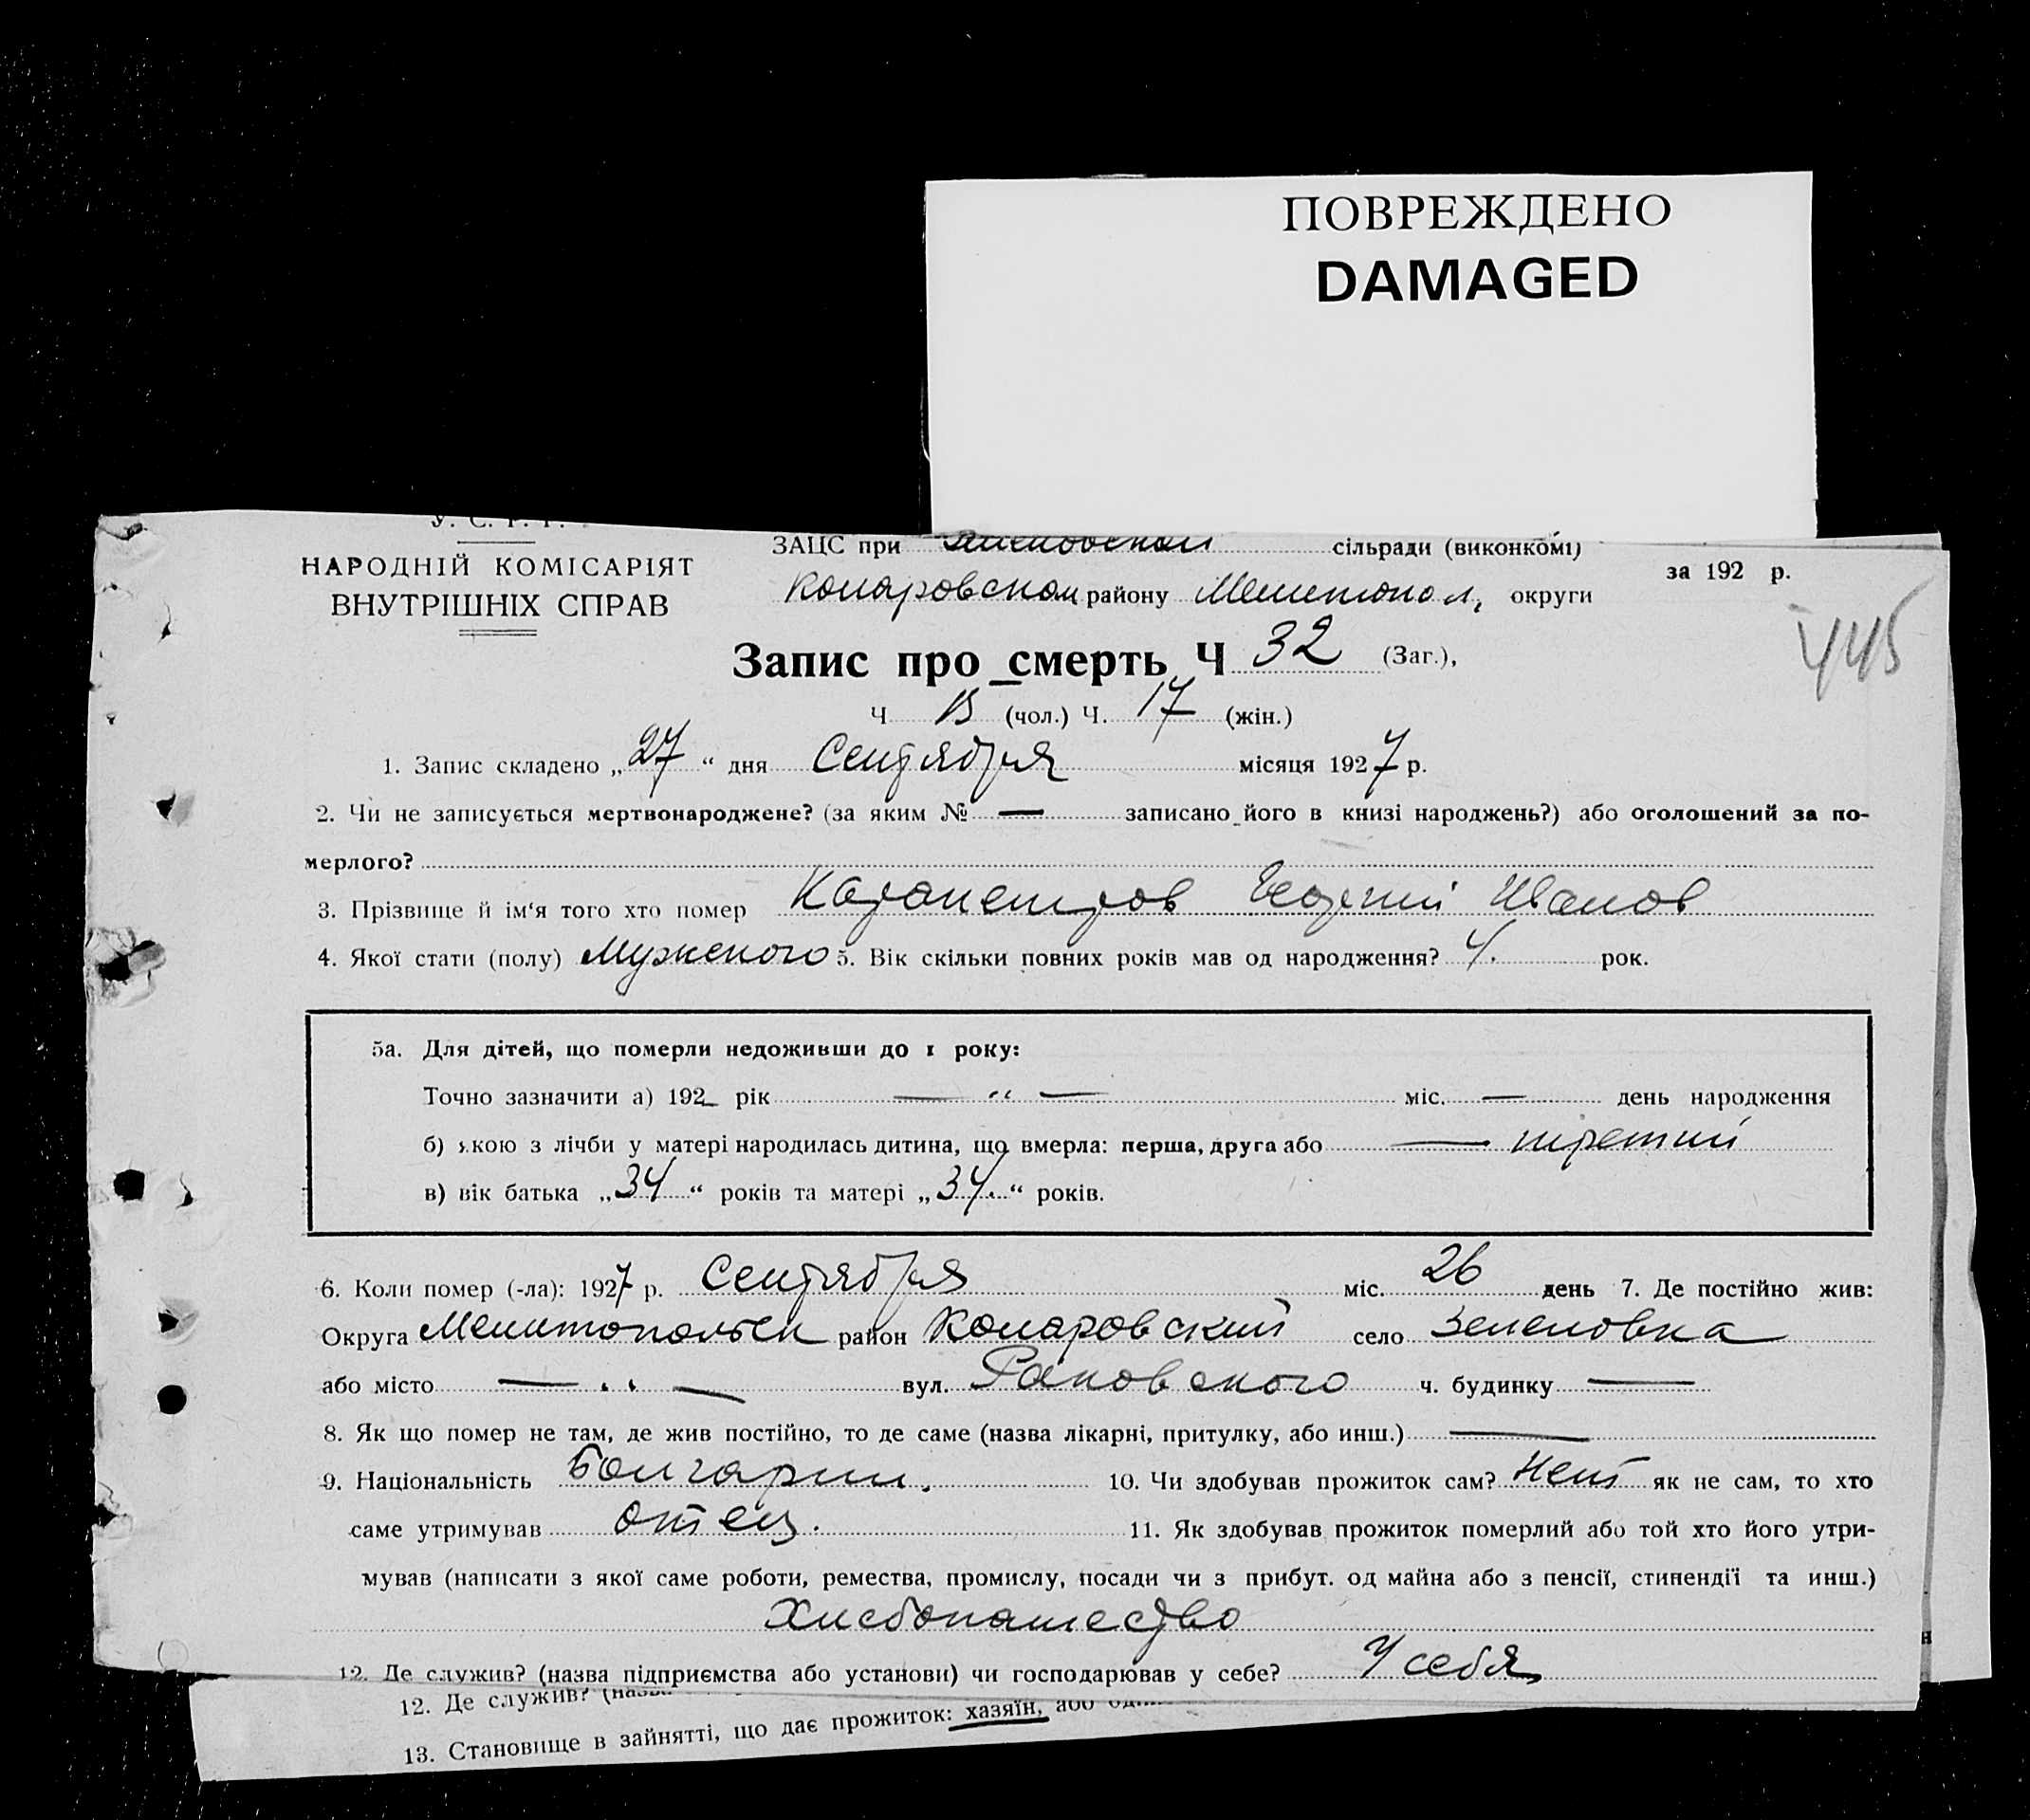 ПОВРЕЖДЕНО
DAMAGED
У. С. Р. Р.
НАРОДНІЙ КОМІСАРІЯТ
ВНУТРІШНІХ СПРАВ
ЗАЦС при сільради (виконкомі)
Коларовском району Мелитопол, округи
за 192 р.
445
Запис про смерть Ч 32 (Заг.),
Ч 15 (чол.) Ч. 17 (жін.)
1. Запис складено „27“ дня Сентября місяця 1927 р.
2. Чи не записується мертвонароджене? (за яким № — записано його в книзі народжень?) або оголошений за по-
мерлого?
3. Прізвище й ім‘я того хто помер Карапетров Георгий Иванов
4. Якої стати (полу) Мужского 5. Вік скільки повних років мав од народження? 4. рок.
5а. Для дітей, що померли недоживши до 1 року:
Точно зазначити а) 192 рік — „ — міс. — день народження
б) якою з лічби у матері народилась дитина, що вмерла: перша, друга або — третий
в) вік батька „34“ років та матері „34.“ років.
6. Коли помер (-ла): 1927 р. Сентября міс. 26 день 7. Де постійно жив:
Округа Мелитопольск район Коларовский село Зеленовка
або місто — „ — вул. Раковского ч. будинку —
8. Як що помер не там, де жив постійно, то де саме (назва лікарні, притулку, або инш.) —
9. Національність Болгарин. 10. Чи здобував прожиток сам? Нет як не сам, то хто
саме утримував отец. 11. Як здобував прожиток померлий або той хто його утри-
мував (написати з якої саме роботи, ремества, промислу, посади чи з прибут. од майна або з пенсії, стипендії та инш.)
Хлебопашество
12. Де служив? (назва підприємства або установи) чи господарював у себе? У себя
12. Де служив? (назва
13. Становище в зайнятті, що дає прожиток: хазяїн, або